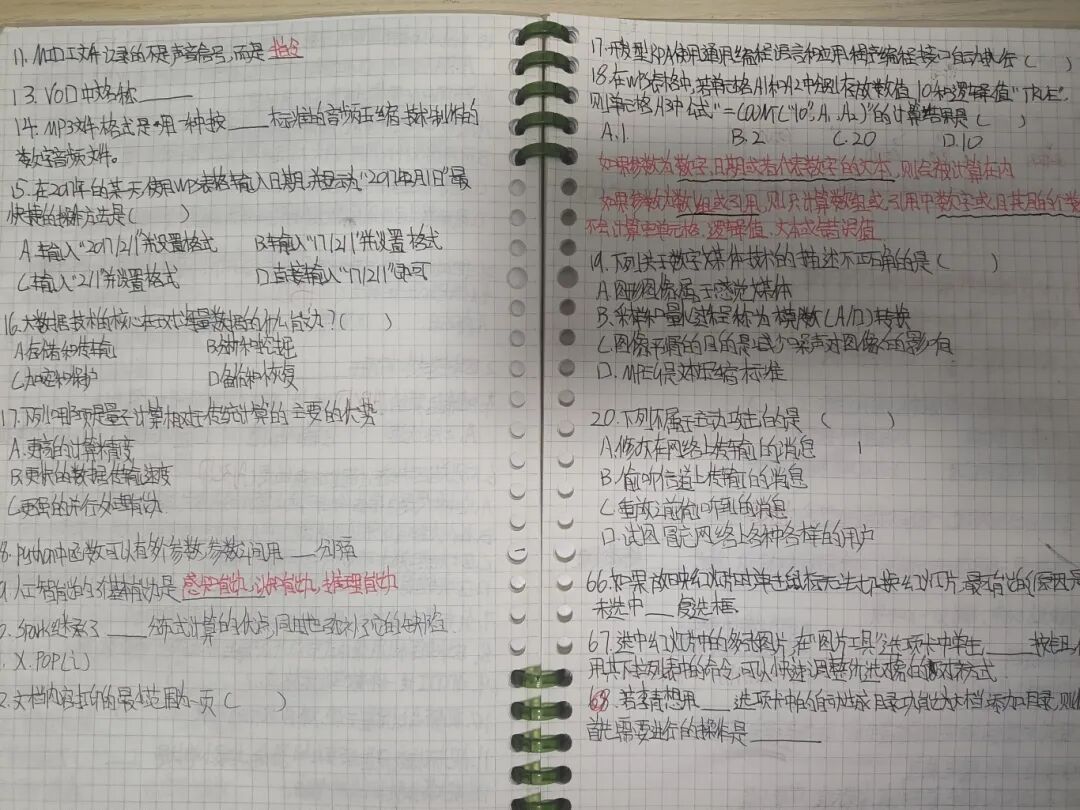 11. MIDI文件记录的不是声音信号,而是 指令
13. VOD中文名称____
14. MP3文件格式是用一种按____标准的音频压缩技术制作的
数字音频文件。
15. 在2017年的某天,使用WPS表格输入日期,并显示为"2017年2月1日"最
快捷的操作方法是( )
A.输入"2017/2/1"并设置格式 B.输入"17/2/1"并设置格式
C.输入"2/1"并设置格式 D.直接输入"17/2/1"即可
16. 大数据技术的核心在于对海量数据的什么能力?( )
A.存储和传输 B.分析和挖掘
C.加密和保护 D.备份和恢复
17. 下列哪项是量子计算相对于传统计算的主要的优势
A.更高的计算精度
B.更快的数据传输速度
C.更强的并行处理能力
8. Python中函数可以有多个参数,参数之间用____分隔
9. 人工智能的3个基本能力是 感知能力,认知能力,推理能力
Spark继承了____分布式计算的优点,同时也弥补了它的缺陷
. X.POP(i)
2. 文档内容打印的最小范围为一页( )
17. 开发型RPA使用通用编程语言和应用程序编程接口自动执行( )
18. 在WPS表格中,若单元格A1和A2中分别存放数值10和逻辑值"TRUE",
则单元格A3中公式"=COUNT("10",A1,A2)"的计算结果是( )
A.1 B.2 C.20 D.10
如果参数为数字、日期或者代表数字的文本,则会被计算在内
如果参数为数组或引用,则只计算数组或引用中数字或日期的个数
不会计算空单元格、逻辑值、文本或错误值
19. 下列关于数字媒体技术的描述不正确的是( )
A.图形图像属于感觉媒体
B.采样和量化过程称为模数(A/D)转换
C.图像平滑的目的是减少噪声对图像的影响
D. MPEG是文本压缩标准
20. 下列不属于主动攻击的是( )
A.修改在网络上传输的消息
B.偷听信道上传输的消息
C.重放之前偷听到的消息
D.试图冒充网络上各种各样的用户
66. 如果放映幻灯片时单击鼠标无法切换幻灯片,最可能的原因是
未选中____复选框.
67. 选中幻灯片中的多张图片,在"图片工具"选项卡中单击____按钮,
用其下拉列表中的命令,可以快速调整所选对象的对齐方式
68. 若李青想用____选项卡中的自动生成目录功能为文档添加目录,则
首先需要进行的操作是____